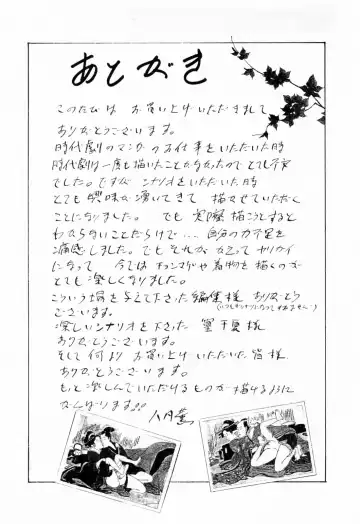 あとがき
このたびは お買い上げいただきまして
ありがとうございます。
時代劇のマンガのお仕事をいただいた時
時代劇は一度も描いたことがなかったのでとても不安
でした。ですが シナリオをいただいた時
とても興味が湧いてきて 描かせていただく
ことになりました。 でも 実際描こうとすると
わからないことだらけで… 自分の力不足を
痛感しました。でもそれが かえって カイカイ
になって 今では チョンマゲや着物を描くのが
とても楽しくなりました。
こういう場を与えて下さった編集様 ありがとう
ございます。
(いつもギリギリになってすみません…)
楽しいシナリオを下さった 様
ありがとうございます。
そして 何より お買い上げいただいた 皆様
ありがとうございます。
もっと楽しんでいただけるものが描けるように
がんばります。
八月薫